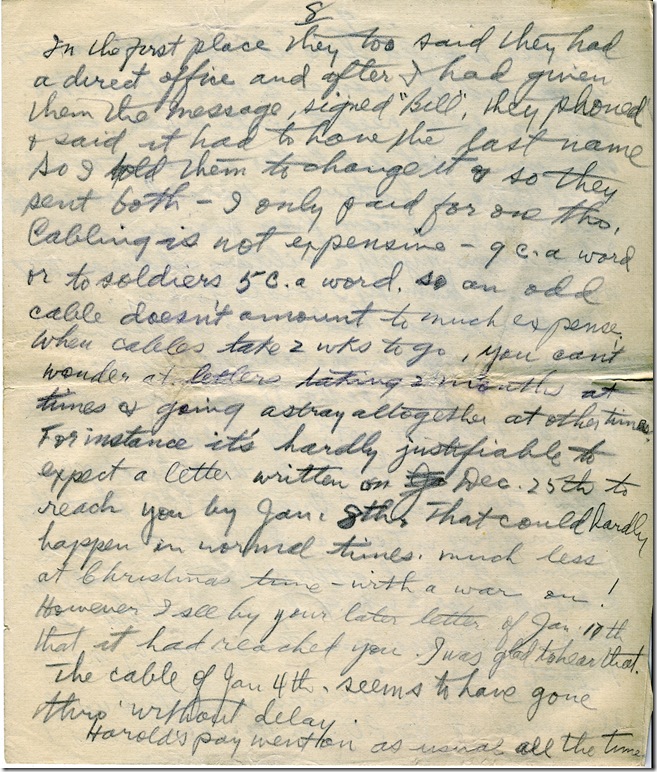 8
In the first place they too said they had
a direct office and after I had given
them the message, signed "Bill", they phoned
& said it had to have the last name
So I told them to change it & so they
sent both - I only paid for one tho.
Cabling is not expensive - 9 c. a word
or to soldiers 5 c. a word. so an odd
cable doesn't amount to much expense.
When cables take 2 wks to go, you can't
wonder at letters taking 2 months at
times & going astray altogether at other times.
For instance it's hardly justifiable to
expect a letter written on Dec. 25th to
reach you by Jan. 8th. That could hardly
happen in normal times. much less
at Christmas time - with a war on!
However I see by your later letter of Jan. 17th
that it had reached you. I was glad to hear that.
The cable of Jan 4th. seems to have gone
thro' without delay.
Harold's pay went on as usual all the time